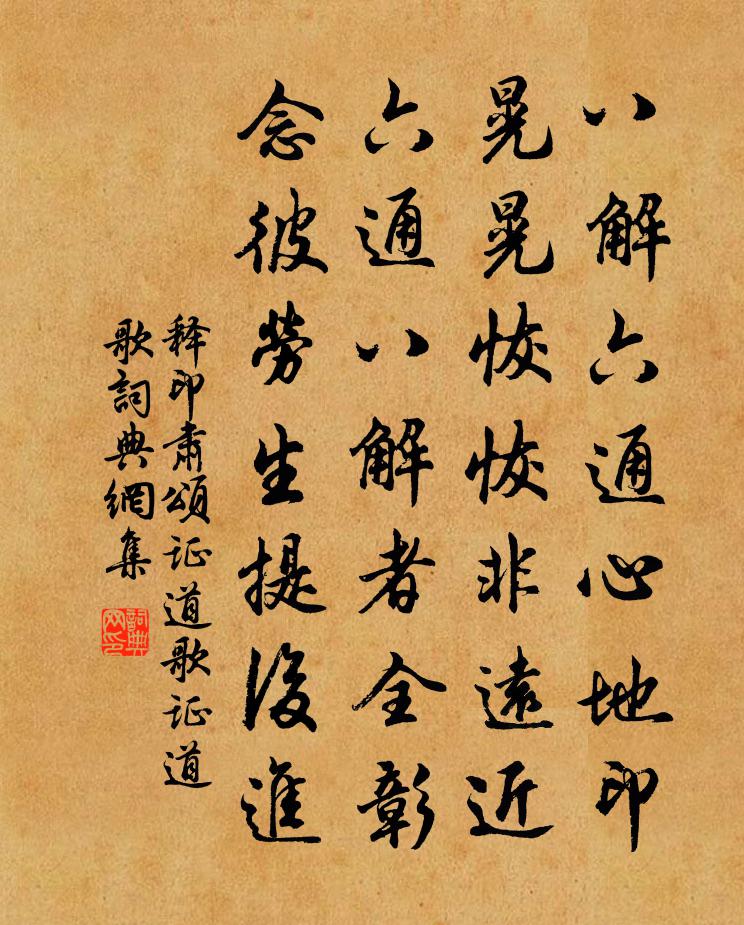 八解六通心地印
晃晃恢恢非遠近
六通八解者全彰
念彼勞生提後進
释印肃頌证道歌证道
歌詞典網集
詞典
网印